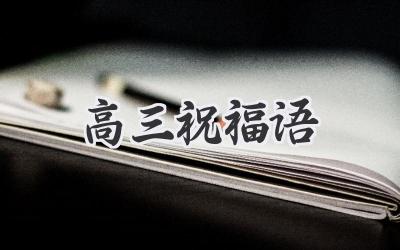 高三祝福语